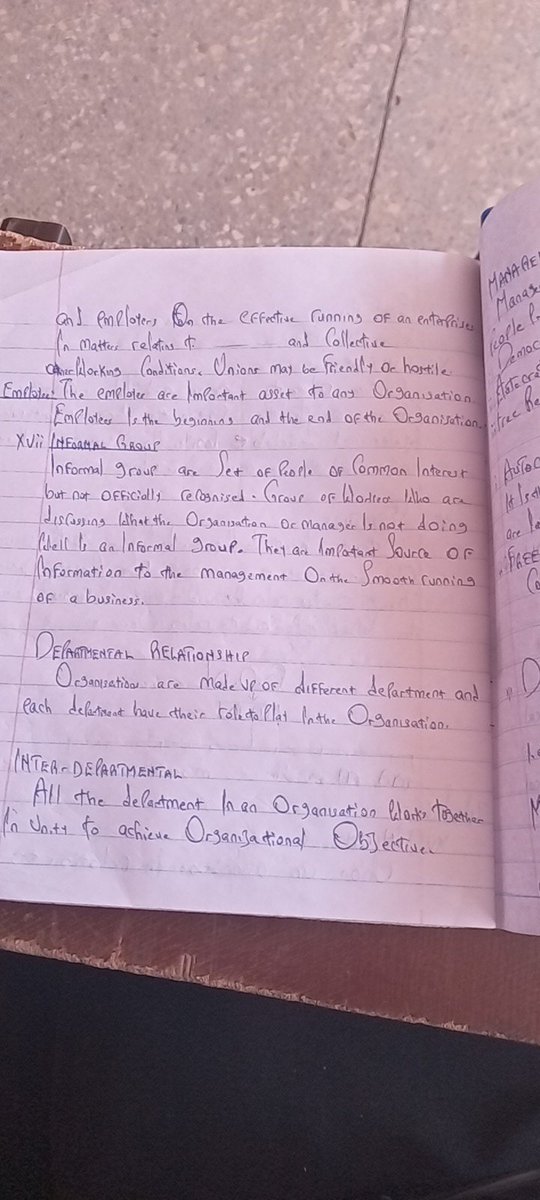 and employers on the effective running of an enterprise
In matters relating to and Collective
other Working Conditions. Unions may be friendly or hostile.
Employee: The employee are Important asset to any Organisation.
Employees Is the beginning and the end of the Organisation.
Xvii INFORMAL GROUP
Informal group are Set of People of Common Interest
but not officially recognised. Group of Workers Who are
discussing What the Organisation or manager Is not doing
Well Is an Informal group. They are Important Source of
Information to the management On the Smooth running
of a business.
DEPARTMENTAL RELATIONSHIP
Organisations are made up of different department and
each department have their role to Play In the Organisation.
INTER-DEPARTMENTAL
All the department In an Organisation Works Together
In Unity to achieve Organizational Objective.
MANAGE
Manage
People
Democ
Autocra
Free Re
AUTOC
It Is th
are
FREE
Co